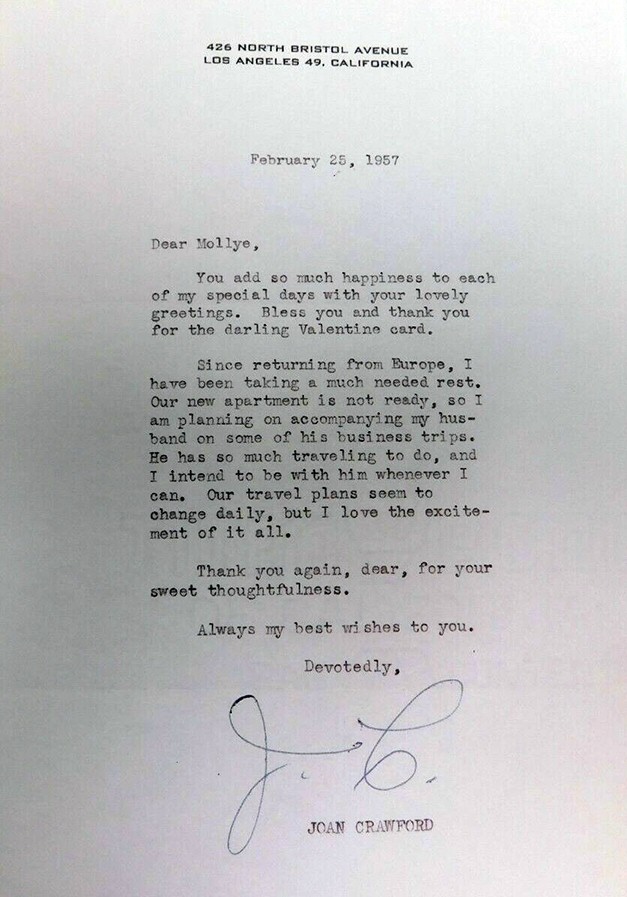 426 NORTH BRISTOL AVENUE
LOS ANGELES 49, CALIFORNIA
February 25, 1957
Dear Mollye,
You add so much happiness to each
of my special days with your lovely
greetings. Bless you and thank you
for the darling Valentine card.
Since returning from Europe, I
have been taking a much needed rest.
Our new apartment is not ready, so I
am planning on accompanying my hus-
band on some of his business trips.
He has so much traveling to do, and
I intend to be with him whenever I
can. Our travel plans seem to
change daily, but I love the excite-
ment of it all.
Thank you again, dear, for your
sweet thoughtfulness.
Always my best wishes to you.
Devotedly,
J. C.
JOAN CRAWFORD